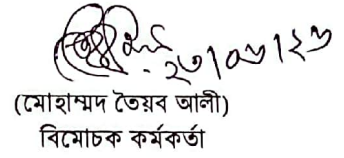 ২৩/০৮/২৩
(মোহাম্মদ তৈয়ব আলী)
বিমোচক কর্মকর্তা